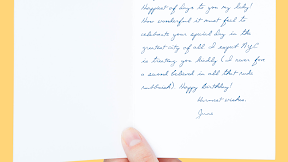 Happiest of days to you my lady!
How wonderful it must feel to
celebrate your special day in the
greatest city of all. I expect NYC
is treating you kindly (I never for
a second believed in all that rude
rubbish). Happy birthday!
Warmest wishes,
June